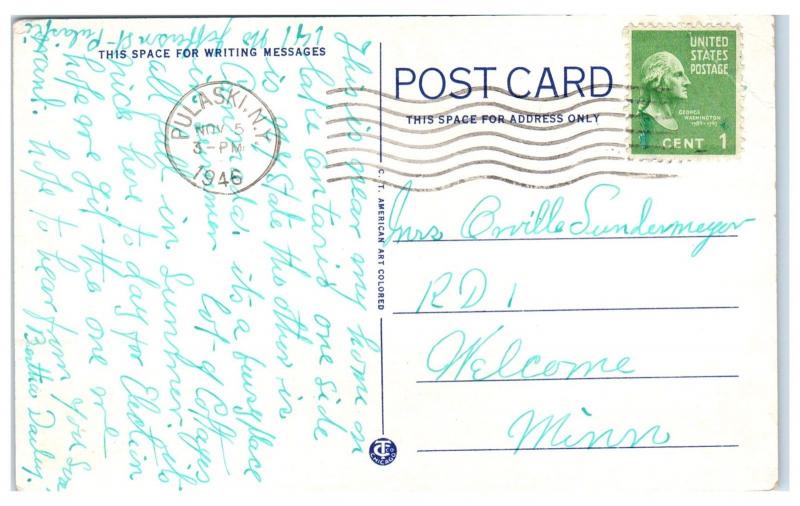 THIS SPACE FOR WRITING MESSAGES
POST CARD
THIS SPACE FOR ADDRESS ONLY
UNITED
STATES
POSTAGE
GEORGE
WASHINGTON
1789-1797
1 CENT 1
PULASKI, N.Y.
NOV 5
3-PM
1946
C. T. AMERICAN ART COLORED
CHICAGO
Mrs Orville Sundermeyer
RD 1
Welcome
Minn
This is near my home on
Lake Ontario one side
is our State the other is
Canada. its a fine place
in Summer lot of Cottages
all full in Summer its
nice here to day for Election
hope we git the one we
want. hope to hear from you Soon
Bertha Dailey.
Jefferson St - Pulaski